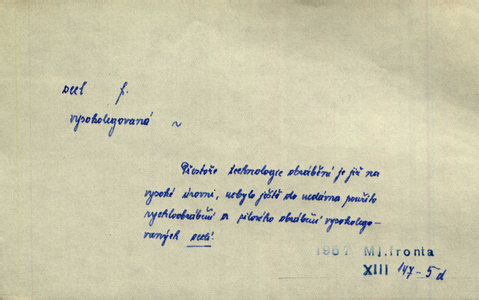 ocel f.
vysokolegovaná ~
Přestože technologie obrábění je již na
vysoké úrovni, nebylo ještě do nedávna použito
rychloobrábění a silového obrábění vysokolego-
vaných ocelí.
1957 Ml.fronta
XIII 147-5 d